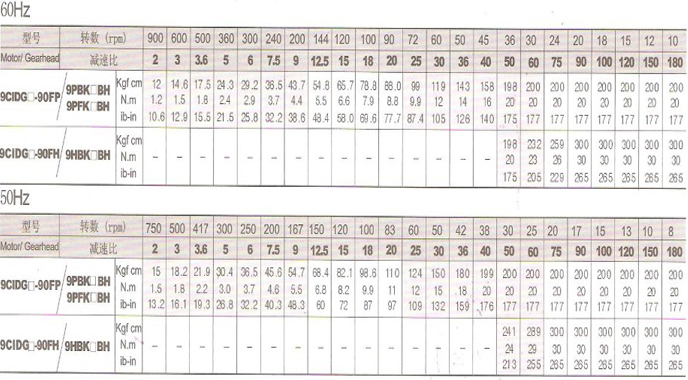 60Hz
型号 转数 (rpm) 900 600 500 360 300 240 200 144 120 100 90 72 60 50 45 36 30 24 20 18 15 12 10
Motor/ Gearhead 减速比 2 3 3.6 5 6 7.5 9 12.5 15 18 20 25 30 36 40 50 60 75 90 100 120 150 180
Kgf cm 12 14.6 17.5 24.3 29.2 36.5 43.7 54.8 65.7 78.8 88.0 99 119 143 158 198 200 200 200 200 200 200 200
9CIDG□-90FP/ 9PBK□BH 9PFK□BH N.m 1.2 1.5 1.8 2.4 2.9 3.7 4.4 5.5 6.6 7.9 8.8 9.9 12 14 16 20 20 20 20 20 20 20 20
ib-in 10.6 12.9 15.5 21.5 25.8 32.2 38.6 48.4 58.0 69.6 77.7 87.4 105 126 140 175 177 177 177 177 177 177 177
Kgf cm 198 232 259 300 300 300 300 300
9CIDG□-90FH/ 9HBK□BH N.m – – – – – – – – – – – – – – – 20 23 26 30 30 30 30 30
ib-in 175 205 229 265 265 265 265 265
50Hz
型号 转数 (rpm) 750 500 417 300 250 200 167 150 120 100 83 60 50 42 38 30 25 20 17 15 13 10 8
Motor/ Gearhead 减速比 2 3 3.6 5 6 7.5 9 12.5 15 18 20 25 30 36 40 50 60 75 90 100 120 150 180
Kgf cm 15 18.2 21.9 30.4 36.5 45.6 54.7 68.4 82.1 98.6 110 124 150 180 199 200 200 200 200 200 200 200 200
9CIDG□-90FP/ 9PBK□BH 9PFK□BH N.m 1.5 1.8 2.2 3.0 3.7 4.6 5.5 6.8 8.2 9.9 11 12 15 18 20 20 20 20 20 20 20 20 20
ib-in 13.2 16.1 19.3 26.8 32.2 40.3 48.3 60 72 87 97 109 132 159 176 177 177 177 177 177 177 177 177
Kgf cm 241 289 300 300 300 300 300 300
9CIDG□-90FH/ 9HBK□BH N.m – – – – – – – – – – – – – – – 24 29 30 30 30 30 30 30
ib-in 213 255 265 265 265 265 265 265